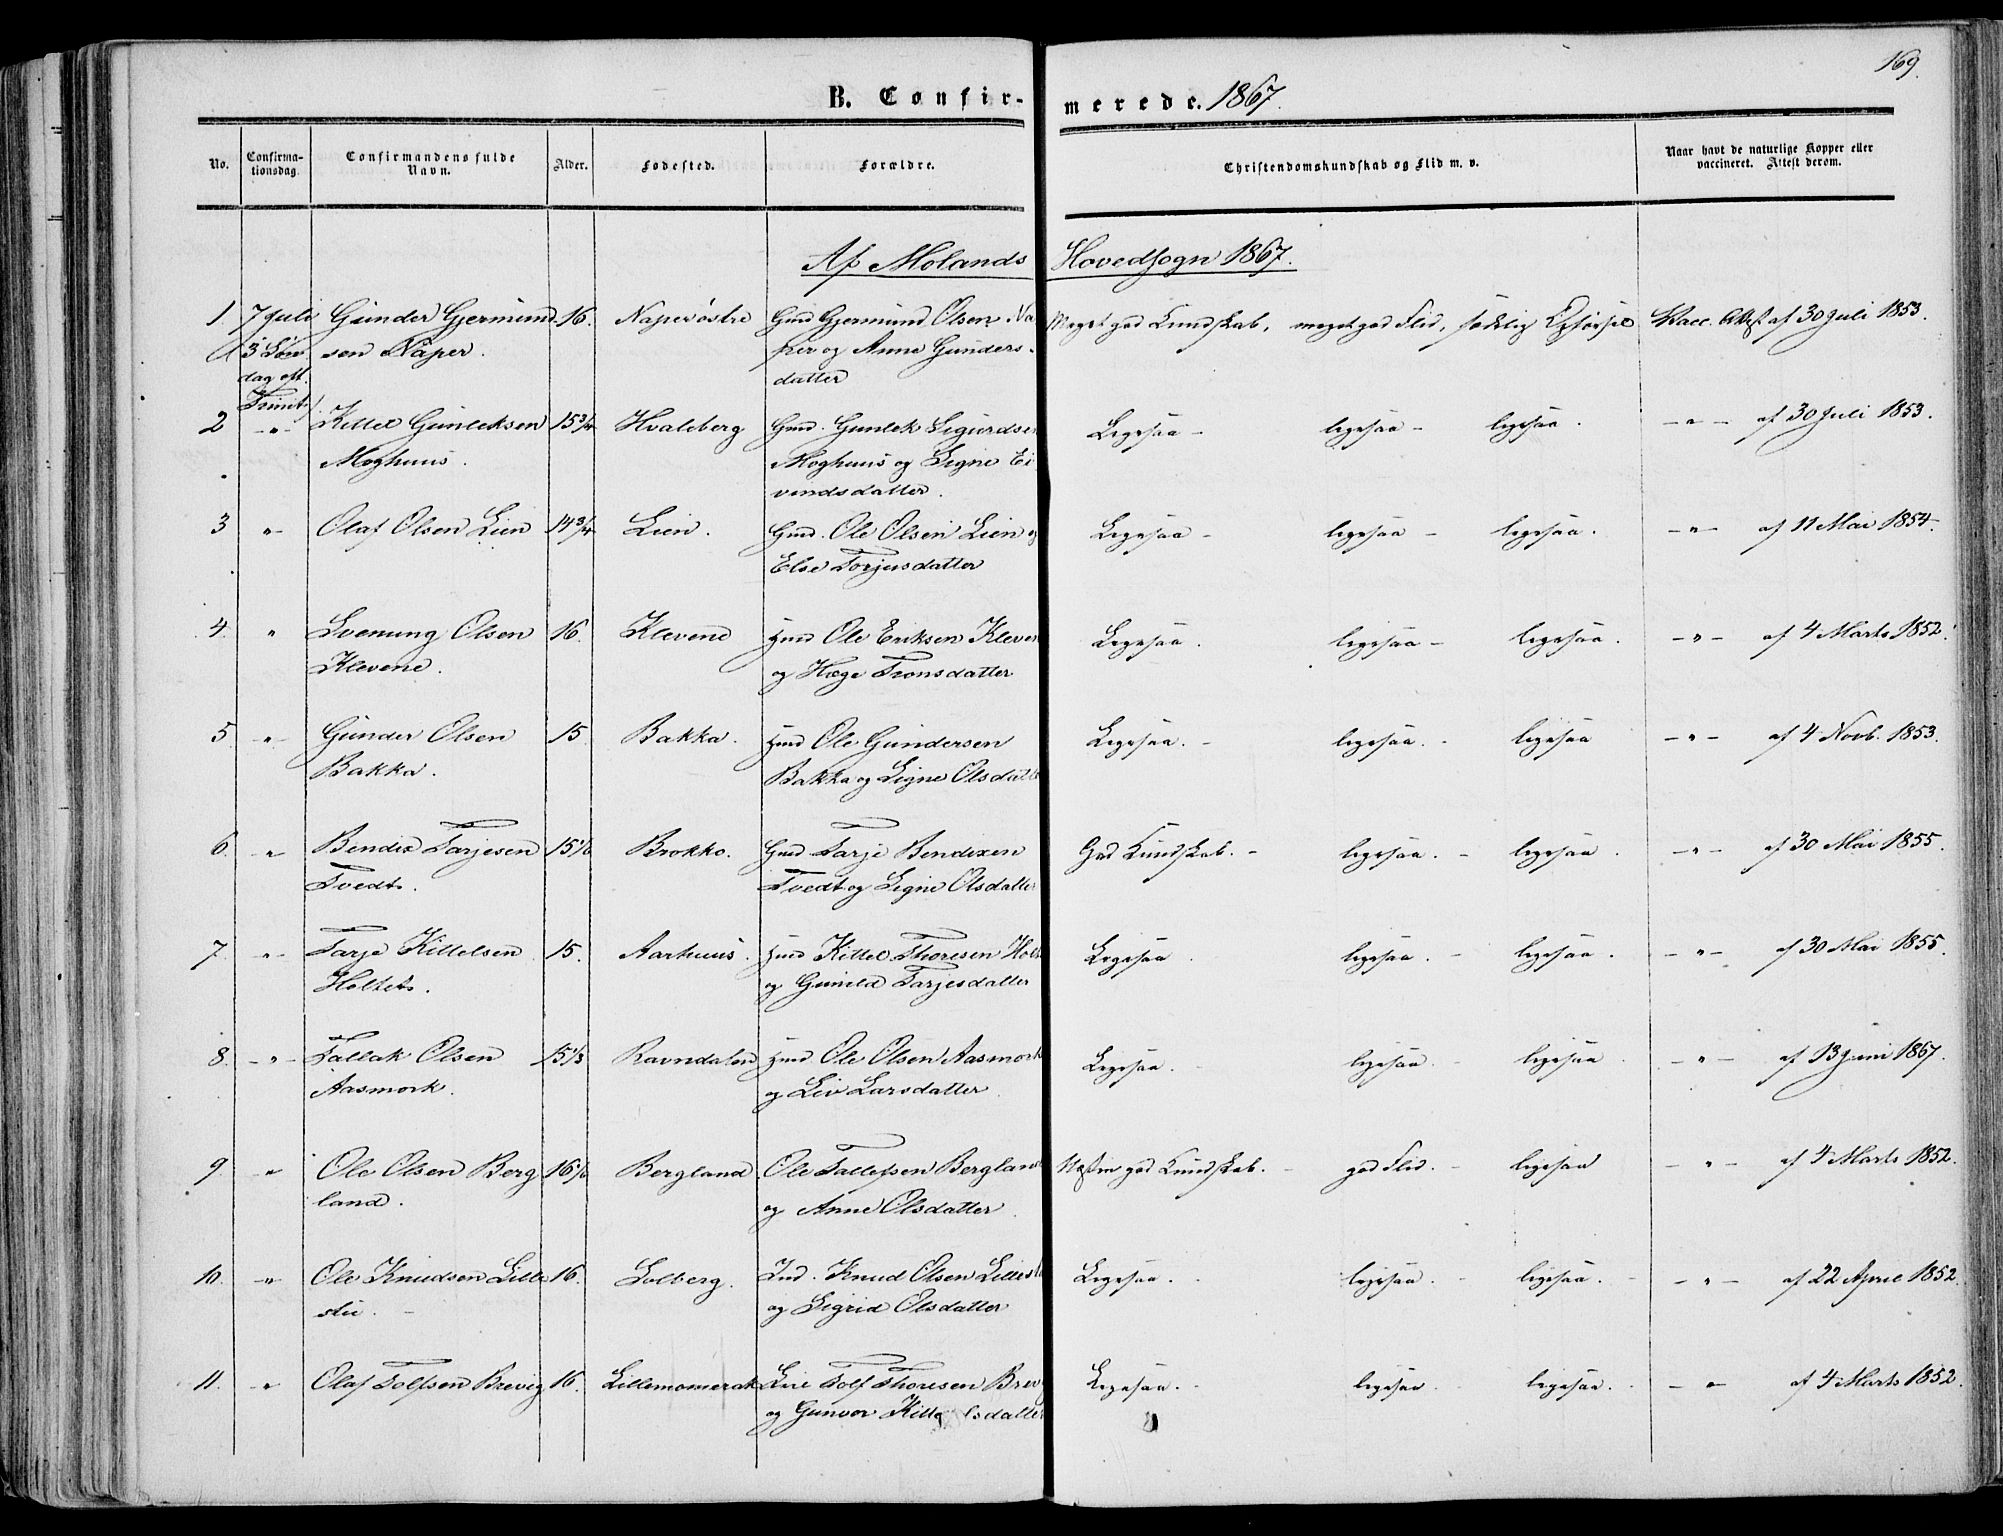 169.
B. Confir- merede. 1867.
No. Confirma- tionsdag. Confirmandens fulde Navn. Alder. Fødested. Forældre. Christendomskundskab og Flid m. v. Naar havt de naturlige Kopper eller vaccineret. Attest derom.
Af Molands Hovedsogn 1867.
1. 7 Juli Gunder Gjermund- 16. Naper østre Gmd Gjermund Olsen Na Meget god Kundskab, meget god Flid, sædelig Opførsel Vacc. Attest af 30 Juli 1853.
(3 Søn- sen Naper. per og Anne Gunders-
dag eft. datter
Trinit.)
2 -"- Kittel Gunleksen 15 3/4 Hvaleberg Gmd. Gunlek Sigurdsen Ligesaa - ligesaa - ligesaa. -"- af 30 Juli 1853.
Moghuus. Moghuus og Signe Ei
vindsdatter.
3 " Olaf Olsen Lien 14 3/4 Lien. Gmd. Ole Olsen Lien og Ligesaa - ligesaa - ligesaa. -"- af 11 Mai 1854.
Else Torjusdatter
4. " Svenung Olsen 16. Klevene Hmd Ole Eriksen Kleven Ligesaa. ligesaa - ligesaa. -"- af 4 Marts 1852.
Klevene. og Hæge Tronsdatter
5. " Gunder Olsen 15. Bakka. Hmd Ole Gundersen Ligesaa. - ligesaa. - ligesaa -"- af 4 Novb. 1853.
Bakka. Bakka og Signe Olsdatter
6. " Bendix Tarjesen 15 1/6 Brokko. Gmd Tarje Bendixen God Kundskab. - ligesaa. - ligesaa. -"- af 30 Mai 1855.
Tvedt. Tvedt og Signe Olsdatter
7. -"- Tarje Kittelsen 15. Aarhuus. Hmd Kittel Thoresen Holt Ligesaa. ligesaa. - ligesaa. -"- af 30 Mai 1855.
Holtet. og Gunild Tarjesdatter
8. -"- Tallak Olsen 15 1/3 Ravndalen Hmd Ole Olsen Aasmork Ligesaa. - ligesaa. ligesaa. -"- af 13 Juni 1867.
Aasmork. og Liv Larsdatter.
9. " Ole Olsen Berg 16 1/6 Bergland Ole Tallefsen Bergland Næsten god Kundskab. - god Flid. - ligesaa -"- af 4 Marts 1852.
land. og Anne Olsdatter.
10. -"- Ole Knudsen Lille 16. Solberg. Ind. Knud Olsen Lillest Ligesaa. - ligesaa. - ligesaa. - -"- af 22 April 1852.
stu. og Sigrid Olsdatter
11. " Olaf Tolfsen Brevig 16. Lillemomerak Leie Tolf Thoresen Brevig Ligesaa. - ligesaa. - ligesaa. - -"- af 4 Marts 1852.
og Gunvor Kittelsdatter